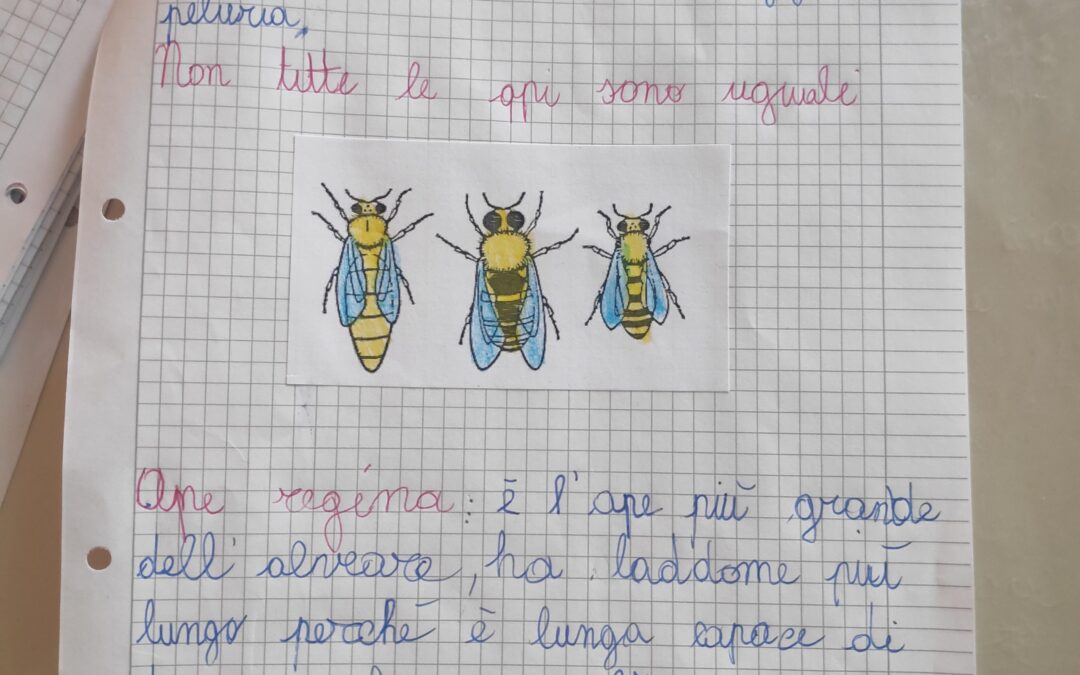 peluria.
Non tutte le api sono uguali
Ape regina: è l'ape più grande
dell'alveare, ha laddome più
lungo perchè è lunga capace di